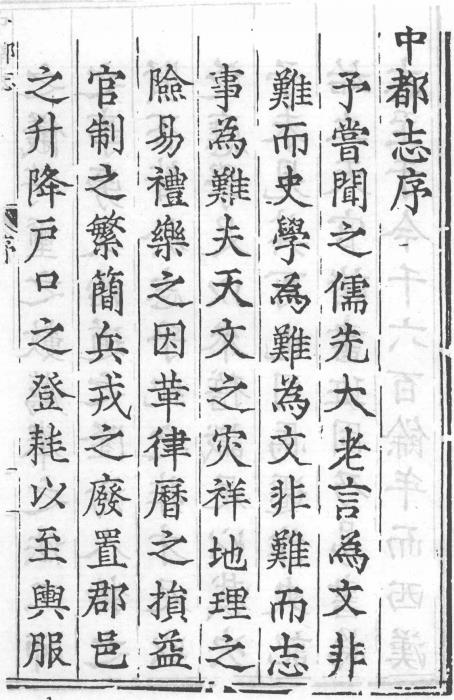 中都志序
予嘗聞之儒先大老言為文非
難而史學為難為文非難而志
事為難夫天文之灾祥地理之
險易禮樂之因革律曆之損益
官制之繁簡兵戎之廢置郡邑
之升降戶口之登耗以至輿服